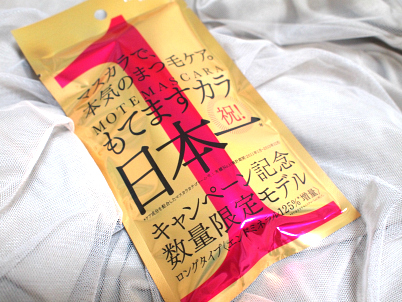 マスカラで、
本気のまつ毛ケア。
MOTE MASCARA
もてますカラ
祝!
日本一
キャンペーン記念
数量限定モデル
ロングタイプ
125%増量